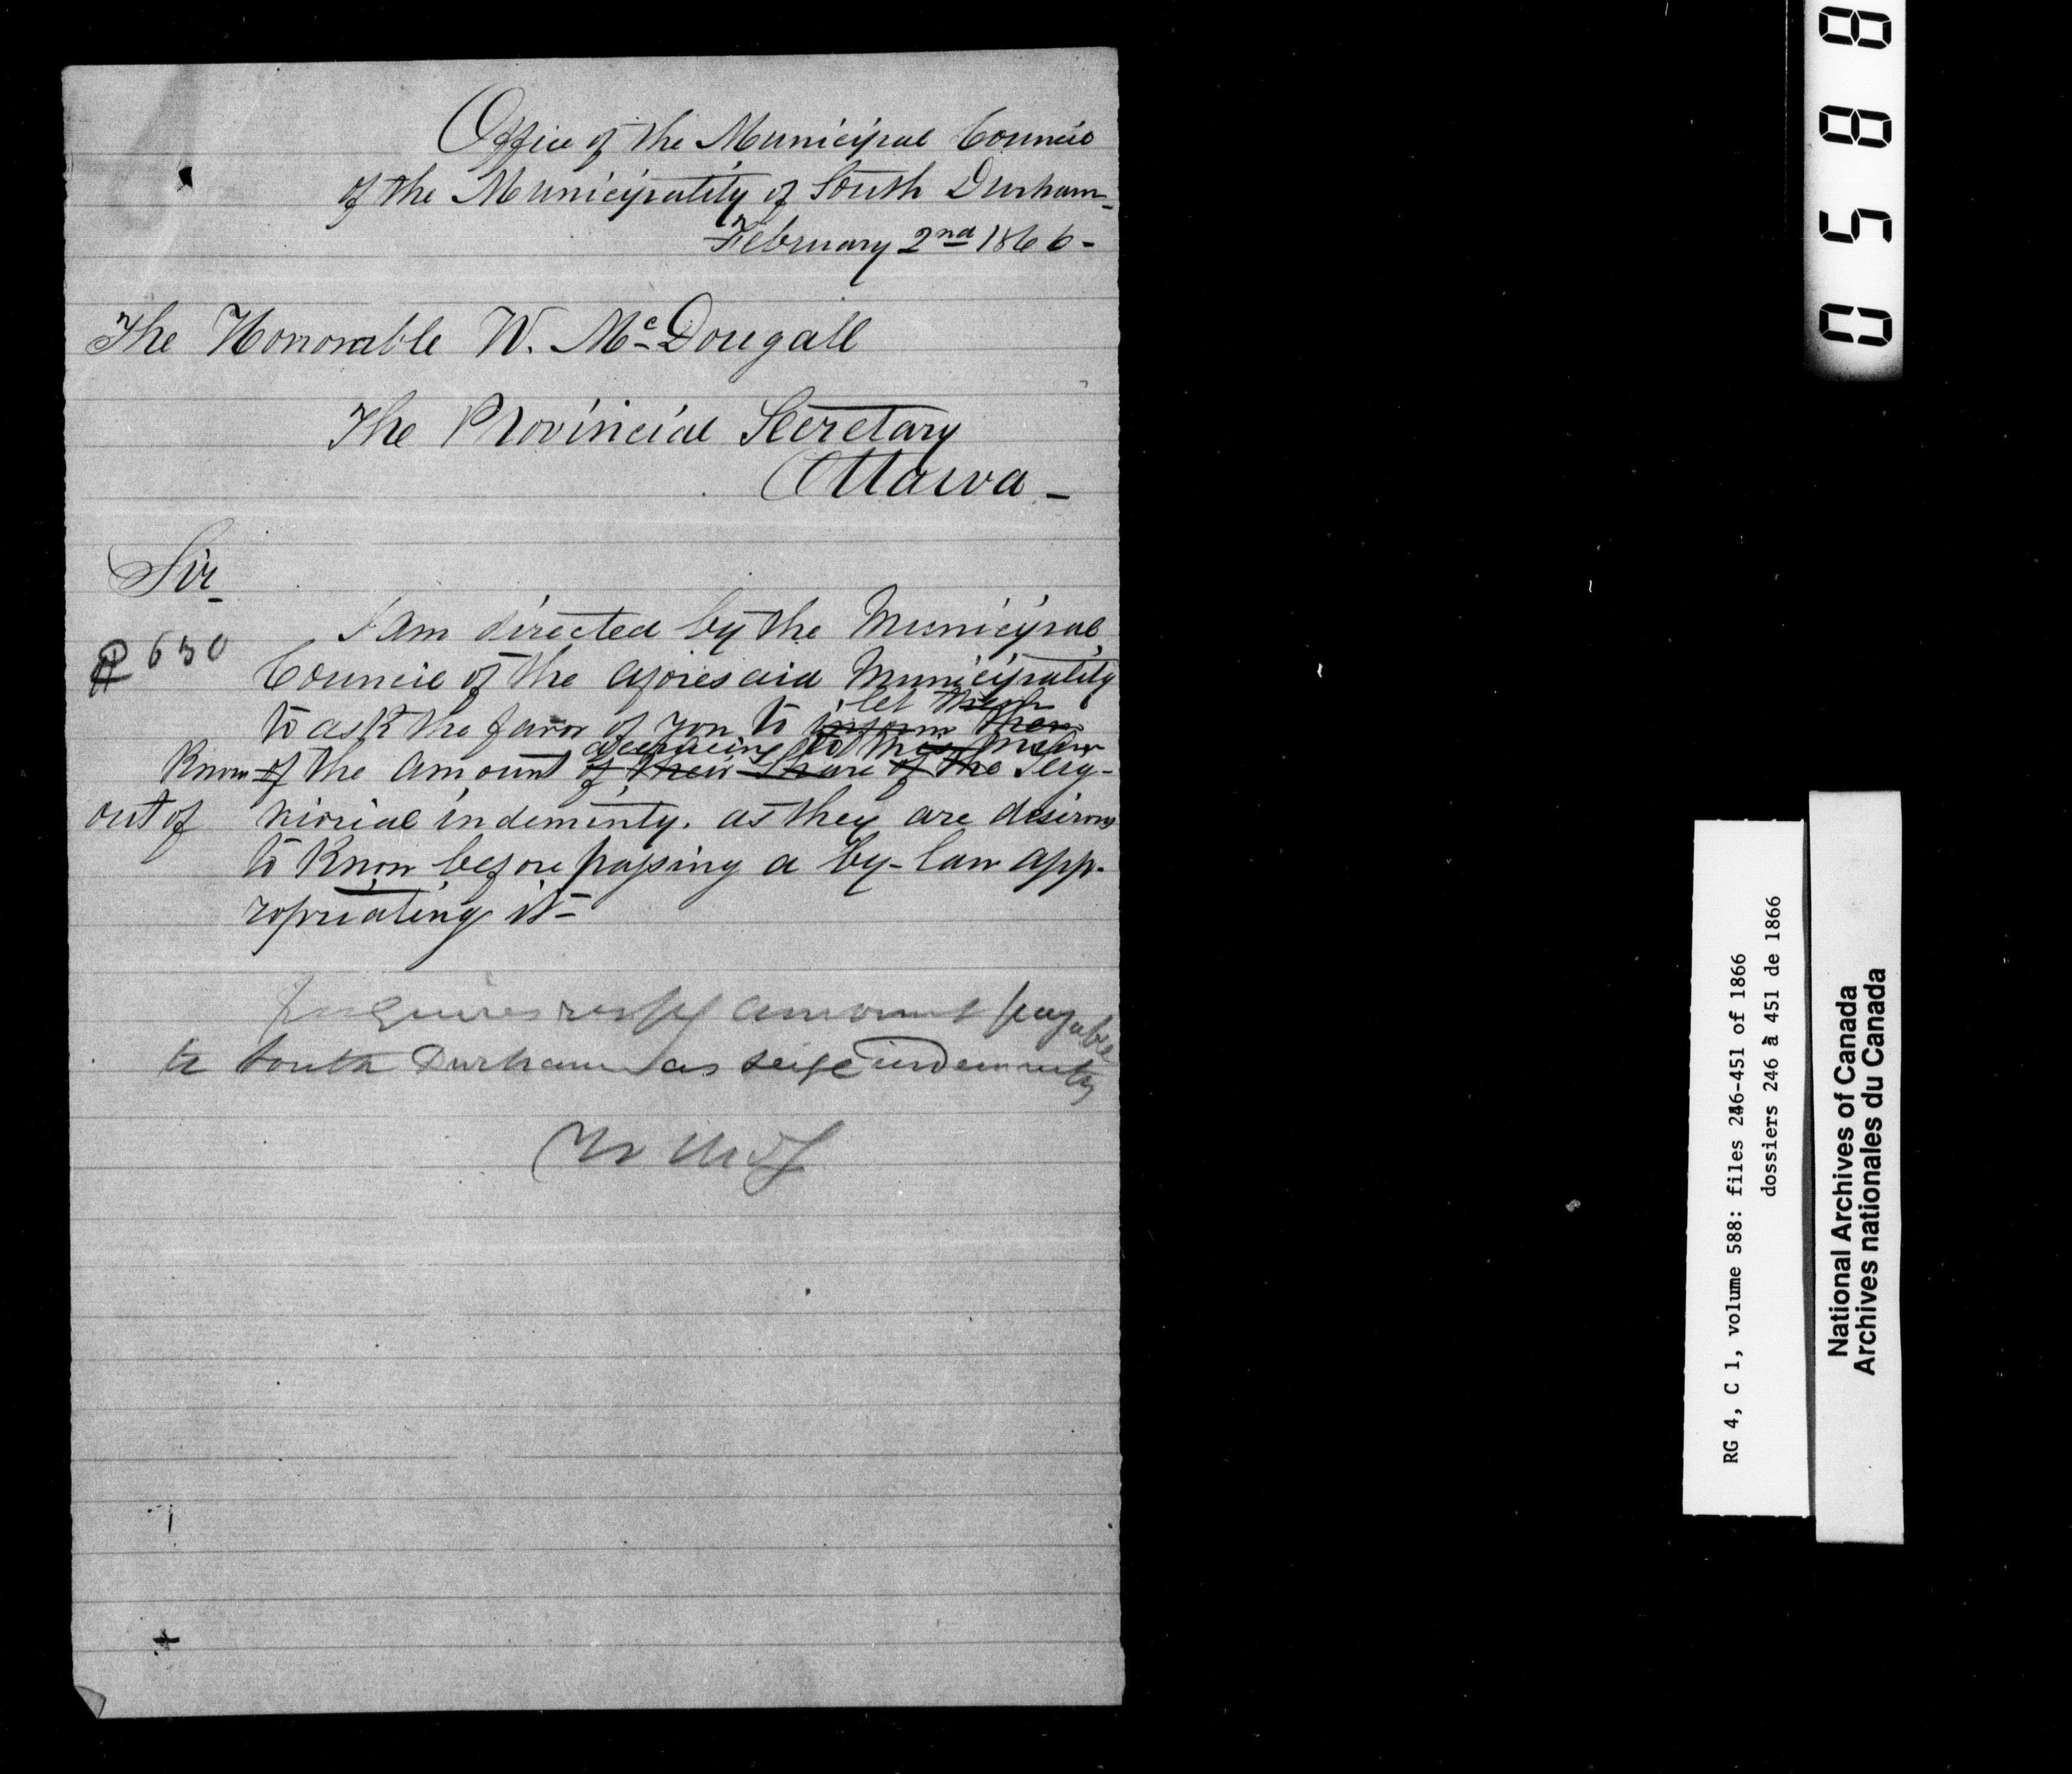 Office of the Municipal Council
of the Municipality of South Durham_
February 2nd 1866-
The Honorable W. Mc Dougall
The Provincial Secretary
Ottawa_
Sir_
I am directed by the Municipal
630
Council of the aforesaid Municipality
let them
to ask the favor of you to inform them
accruing to
Know of the amount of their Share of the Seig-
out of niorial indeminty. as they are desirous
to Know before passing a by-law app-
ropriating it-
amount payable
to South Durham as seige indemnity
0588
RG 4, C 1, volume 588: files 246-451 of 1866
dossiers 246 à 451 de 1866
National Archives of Canada
Archives nationales du Canada